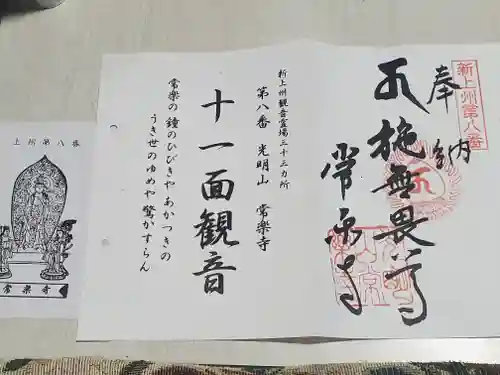 奉納
新上州第八番
施無畏尊
常楽寺
新上州観音霊場三十三カ所
第八番 光明山 常楽寺
十一面観音
常楽の鐘のひびきやあかつきの
うき世のゆめや驚かすらん
上州第八番
常楽寺